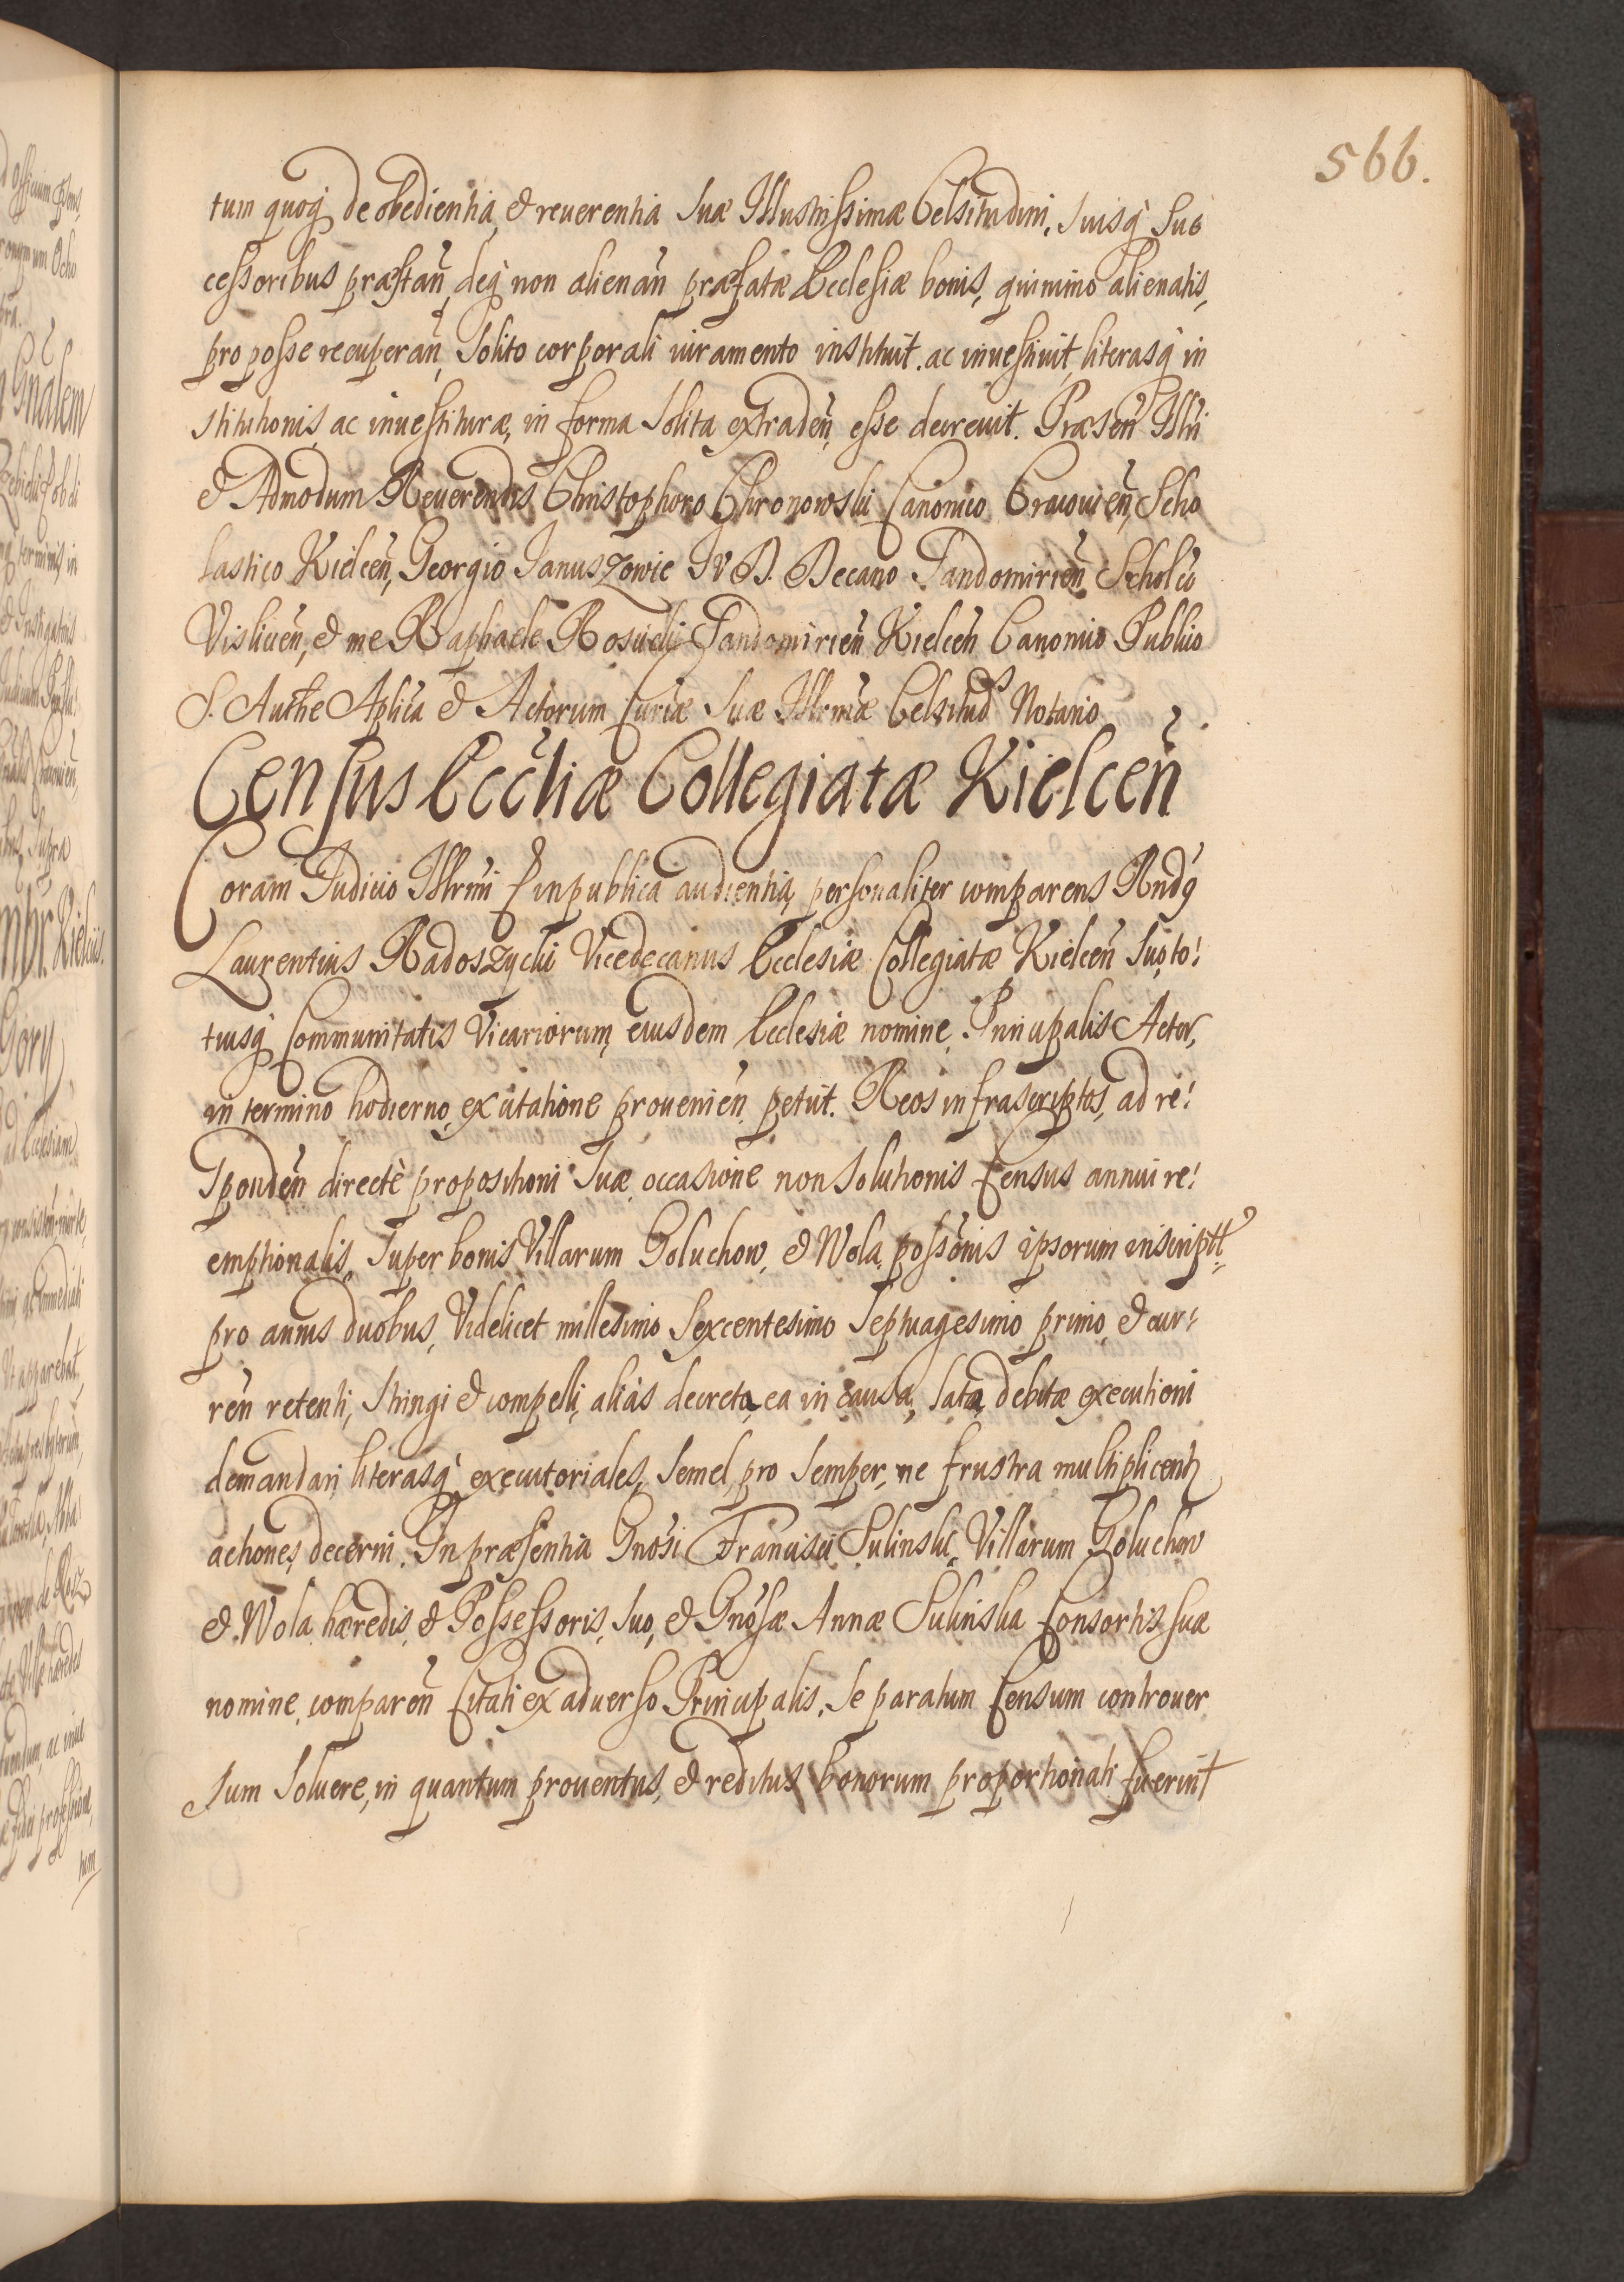 566.
tum quoq̀ de obedientia, et reuerentia Suæ Illustrissimæ Celsitudini, Suisq̀ Suc
cessoribus præstan̄, deq̀ non alienan̄ præfatæ Ecclesiæ bonis, quinimo alienatis,
pro posse recuperan̄, Solito corporali iuramento instituit, ac inuestiuit, literasq̀ in
stitutionis, ac inuestituræ, in forma Solita extraden̄, esse decreuit. Præsen̄ Illri
et Admodum Reuerendis Christophoro Chronowski Canonico Cracouien̄, Scho
lastico Kielcen̄, Georgio Januszowic J V D. Decano Sandomirien̄ Schol̄co
Vislicen̄, et me Raphaele Rosiecki Sandomirien̄ Kielcen̄ Canonico Publico
S. Autħe Aplica et Actorum Curiæ Suæ Illrmæ Celsitud̄s Notario
Census Eccl̄iæ Collegiatæ Kielcen̄
Coram Judicio Illrmi Pin publica audientia, personaliter comparens Rndꝰ
Laurentius Radoszycki Vicedecanus Ecclesiæ Collegiatæ Kielcen̄ Suo, to!
tiusq̀ Communitatis Vicariorum, eiusdem Ecclesiæ nomine, Principalis Actor,
in termino hodierno, ex citatione prouenien̄ petiit. Reos infrascriptos, ad re!
sponden̄ directè propositioni Suæ, occasione non Solutionis Census annui re!
emptionalis, Super bonis Villarum Goluchow, et Wola, possōnis ipsorum inscriptt.
pro annis duobus, Videlicet millesimo Sexcentesimo Septuagesimo primo, et cur:
ren̄ retenti, Stringi et compelli, aliàs decreta, ea in causa, lata, debitæ executioni
demandari, literasq̀ executoriales, Semel pro Semper, ne frustra multiplicentꝛ
actiones, decerni. In præsentia Gnōsi Francisci Sulinski, Villarum Goluchow
et Wola hæredis, et Possessoris, Suo, et Gnōsæ Annæ Sulinska Consortis Suæ
nomine, comparen̄ Citati ex aduerso Principalis, Se paratum Censum controuer
sum Soluere, in quantum prouentus, et reditus bonorum proportionati fuerint